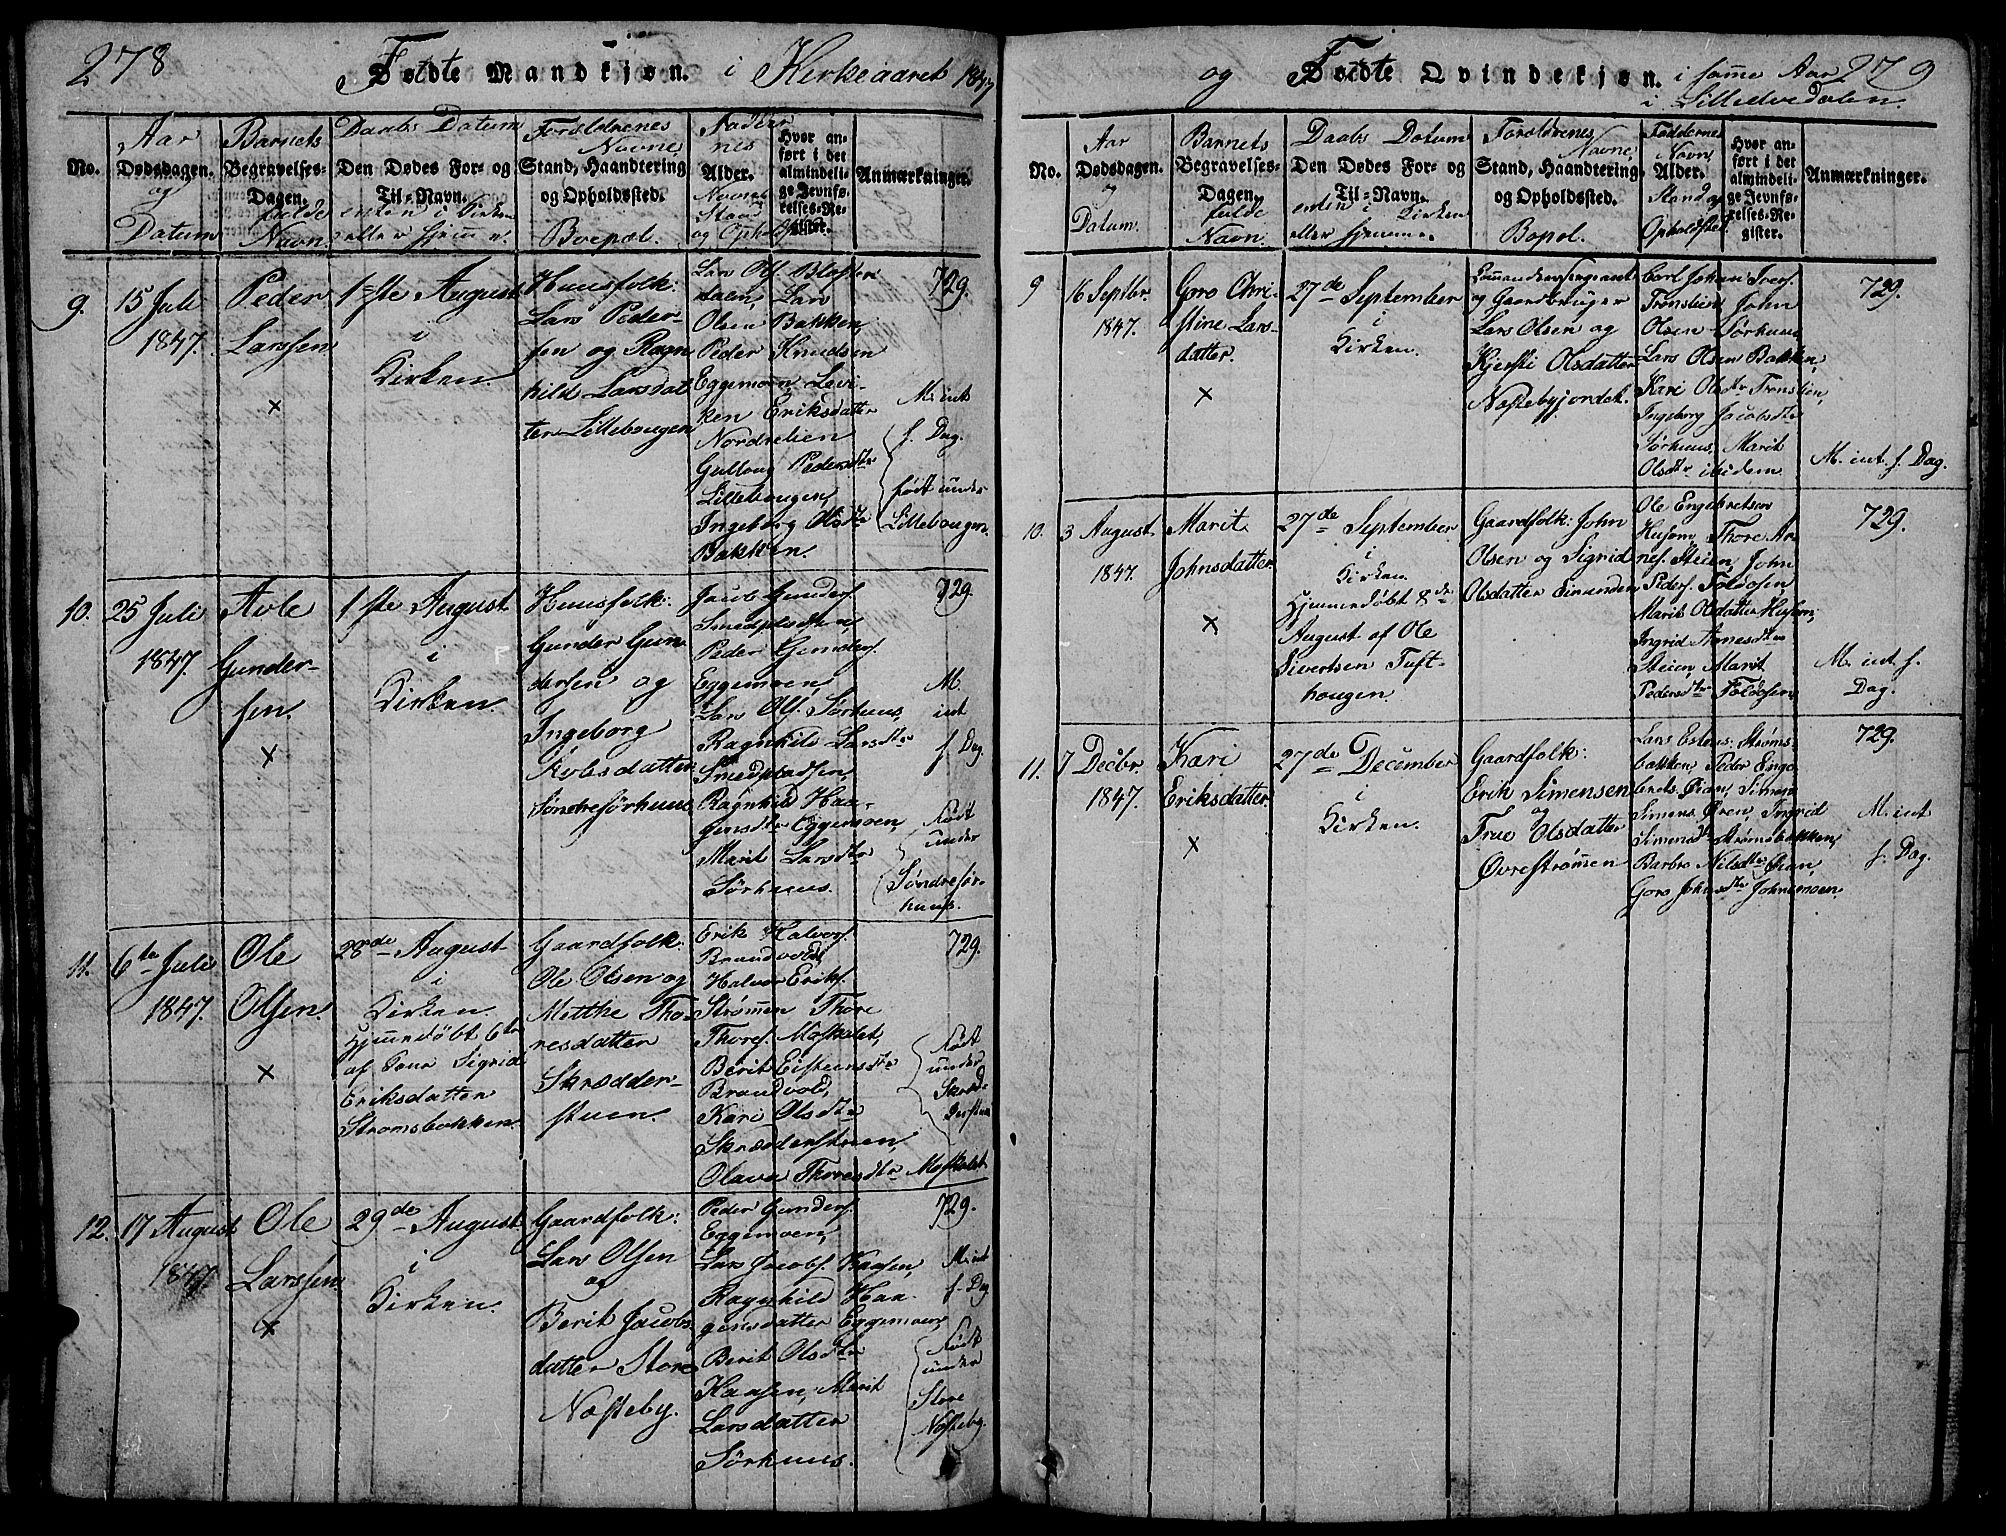 278
Fødte Mandkjøn. i Kirkeaaret 1847
No.
Aar
Dødsdagen.
og
Datum
Barnets
Begravelses-
Dagen.
fulde
Navn.
Daabs Datum
Den Dødes For- og
Til-Navn.
enten i Kirken
eller hjemme.
Forældrenes
Navne
Stand, Haandtering
og Opholdssted.
Boepæl.
Alder.
Navne
Stand
og
Hvor an-
ført i det
almindeli-
ge Jevnfø-
relses-Re-
gister.
Anmærkninger.
9.
15 Juli
1847.
Peder
Larssen
×
1ste August
i
Kirken
Huusfolk:
Lars Peder-
sen og Ragn
hild Larsdat
ter Lillehougen
Lars Ols.
Lars
Olsen Bakken,
Peder Knudsen
Eggemoen,
Eriksdatter
Nordrelien
Pedersdtr
Lillehougen,
Ingeborg Olsdtr
Bakken.
729.
M. int
f. Dag.
født under
Lillehougen.
10.
25 Juli
1847.
Avle
Gunder-
sen.
×
1ste August
i
Kirken.
Huusfolk:
Gunder Gun
dersen og
Ingeborg
datter
Søndre Sørhuus
Jacob Gunders.
Smedpladsen,
Peder Gunders.
Eggemoen,
Lars Ols. Sørhuus,
Ragnhild Larsdtr
Smedpladsen,
Ragnhild Haa-
gensdtr Eggemoen,
Marit Larsdtr
Sørhuus.
729.
M.
int
f. Dag.
Født
under
Søndre Sør-
huus.
11.
6te Juli
1847.
Ole
Olsen.
×
28de August
i
Kirken
Hjemmedøbt 6te
af Sigrid
Eriksdatter
Strømsbakken.
Gaardfolk:
Ole Olsen og
Metthe Tho-
resdatter
Skrædder-
stuen.
Erik Halvors.
Brandvold,
Halvor Eriks.
Strømen Thore
Thores. Moskalet,
Berit Eistensdtr
Brandvold,
Kari Olsdtr
Skrædderstuen,
Olava Thoresdtr Moskalet
729.
Født
under
Skræd
derstuen
12.
17 August
1847.
Ole
Larssen.
×
29de August
i
Kirken.
Gaardfolk:
Lars Olsen
og
Berit Jacobs-
datter Store
Næsteby.
Peder Gunders.
Eggemoen,
Lars Jacobs. Haasen,
Ragnhild Haa-
gensdatter Eggemoen,
Berit Olsdtr
Haasen, Marit
Larsdatter
Sørhuus.
729.
M. int
f. Dag
Født
under
Store
Næsteby.
og Fødte Qvindekjøn. i samme Aar 279
i Lilleelvedalen.
No.
Aar
Dødsdagen.
og
Datum.
Barnets
Begravelses-
Dagen.
fulde
Navn.
Daabs Datum
Den Dødes For- og
Til-Navn.
enten i Kirken
eller hjemme.
Forældrenes
Navne,
Stand, Haandtering
og Opholdssted.
Bopæl.
Faddernes
Navn,
Alder.
Stand og
Opholdssted.
Hvor an-
ført i det
almindeli-
ge Jevnfø-
relses-Re-
gister.
Anmærkninger.
9
16 Septbr.
1847.
Goro Chri-
stine Lars-
datter.
×
27de September
i
Kirken.
Commandeersergeant
og Gaardbruger
Lars Olsen og
Kjersti Olsdatter
Næstebyjordet.
Carl Johan Ivers.
Tronslien John
Olsen Sørhuus
Lars Olsen Bakken,
Kari Olsdtr Tronslien,
Ingeborg Jacobsdtr
Sørhuus, Marit
Olsdtr ibidem.
729.
M. int. f. Dag.
10.
3 August
1847.
Marit
Johnsdatter
×
27de September
i
Kirken.
Hjemmedøbt 8de
August af Ole
Sivertsen Tuft-
hougen.
Gaardfolk: John
Olsen og Sigrid
Olsdatter
Ole Engebretsen
Husom, Thore Ar
nes. Steien, John
Peders. Foldosen,
Marit Olsdatter Husom,
Ingrid Arnesdtr
Steien, Marit
Pedersdtr Foldosen.
729.
M. int. f.
Dag.
11.
7 Decbr.
1847.
Kari
Eriksdatter
×
27de December
i
Kirken.
Gaardfolk:
Erik Simensen
og
True Olsdatter
Øvre Strømen
Lars Estens. Strøms-
bakken, Peder Enge-
brets. Øian, Simen
Simens. Øren, Ingrid
Simensdtr Strømsbakken,
Barbro Nilsdtr Øian,
Goro Johnsdtr Johnsmoen.
729.
M. int
f. Dag.